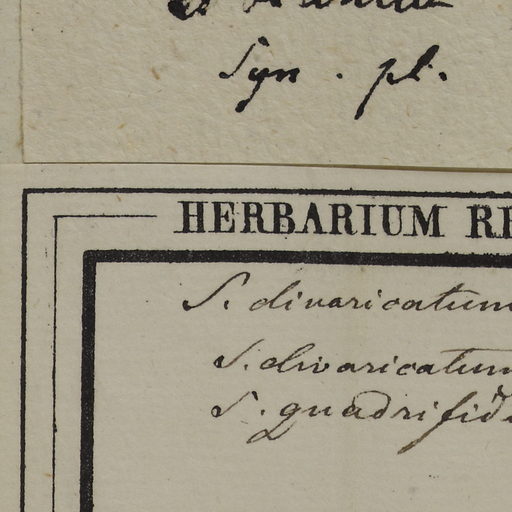 Syn. pl.
HERBARIUM
S. divaricatum
S. divaricatum
S. quadrifid